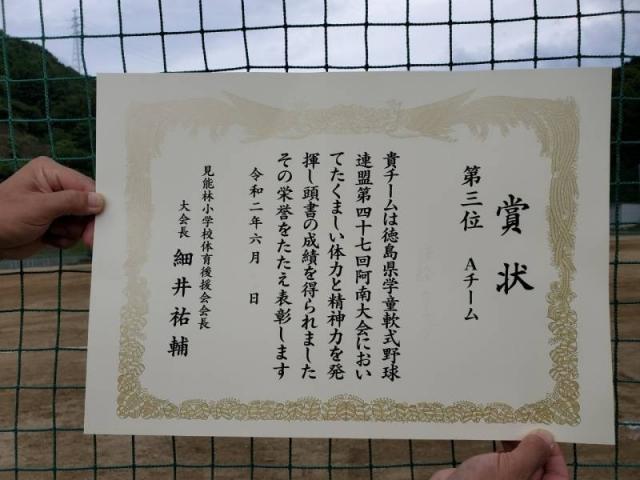 賞状
第三位　Aチーム
貴チームは徳島県学童軟式野球
連盟第四十七回阿南大会におい
てたくましい体力と精神力を発
揮し頭書の成績を得られました
その栄誉をたたえ表彰します
令和二年六月　日
見能林小学校体育後援会会長
大会長　細井祐輔